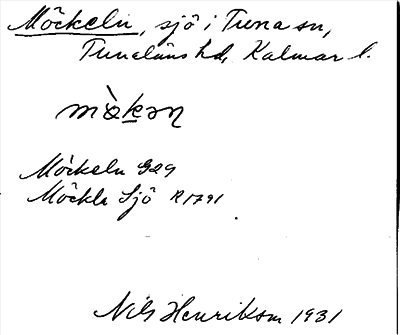 Möckeln, sjö i Tuna sn,
Tunaläns hd, Kalmar l.
mö̀kən
Möckeln G29
Möckla Sjö R1791
Nils Henrikson 1931